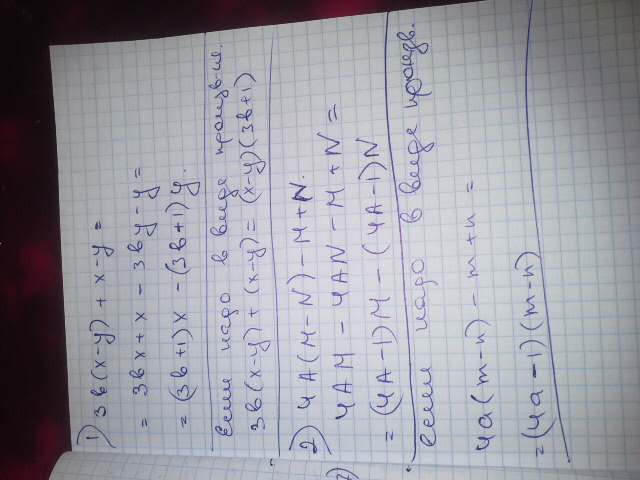 1) 3b(x-y) + x-y =
= 3bx + x - 3by - y =
= (3b+1)x - (3b+1)y.
Если надо в виде произв-ия.
3b(x-y) + (x-y) = (x-y)(3b+1)
2) 4A(M-N) - M + N.
4AM - 4AN - M + N =
= (4A-1)M - (4A-1)N
Если надо в виде произв.
4a(m-n) - m + n =
= (4a-1)(m-n)